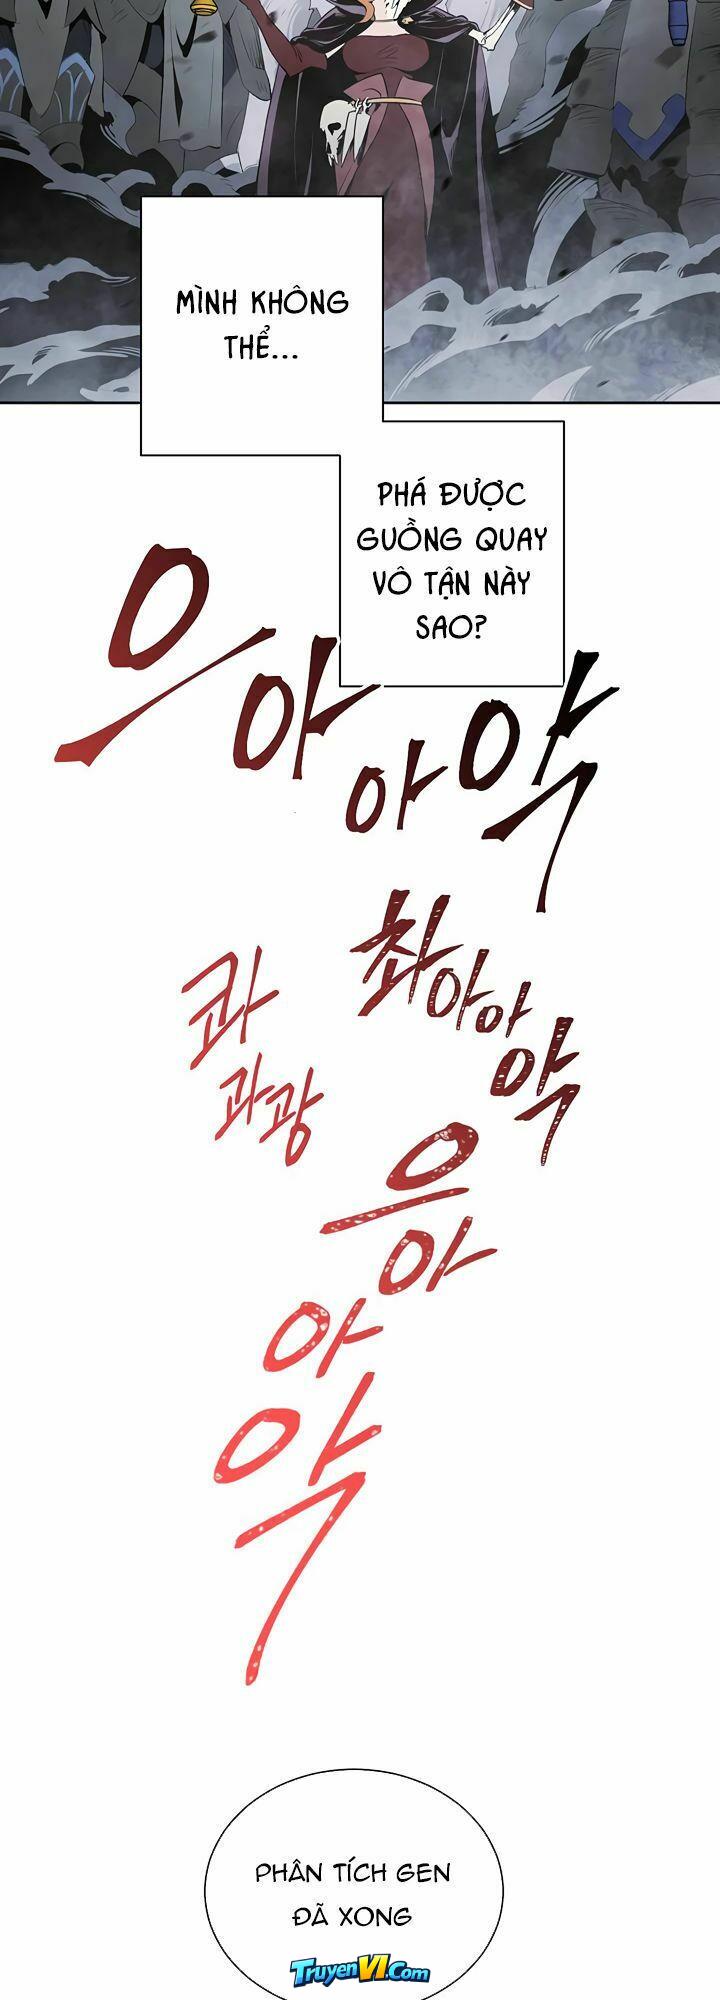 MÌNH KHÔNG
THỂ...
PHÁ ĐƯỢC
GUỒNG QUAY
VÔ TẬN NÀY
SAO?
으아아악
최아아악
콰
콰광
응아
아악
PHÂN TÍCH GEN
ĐÃ XONG
TruyenVI.Com